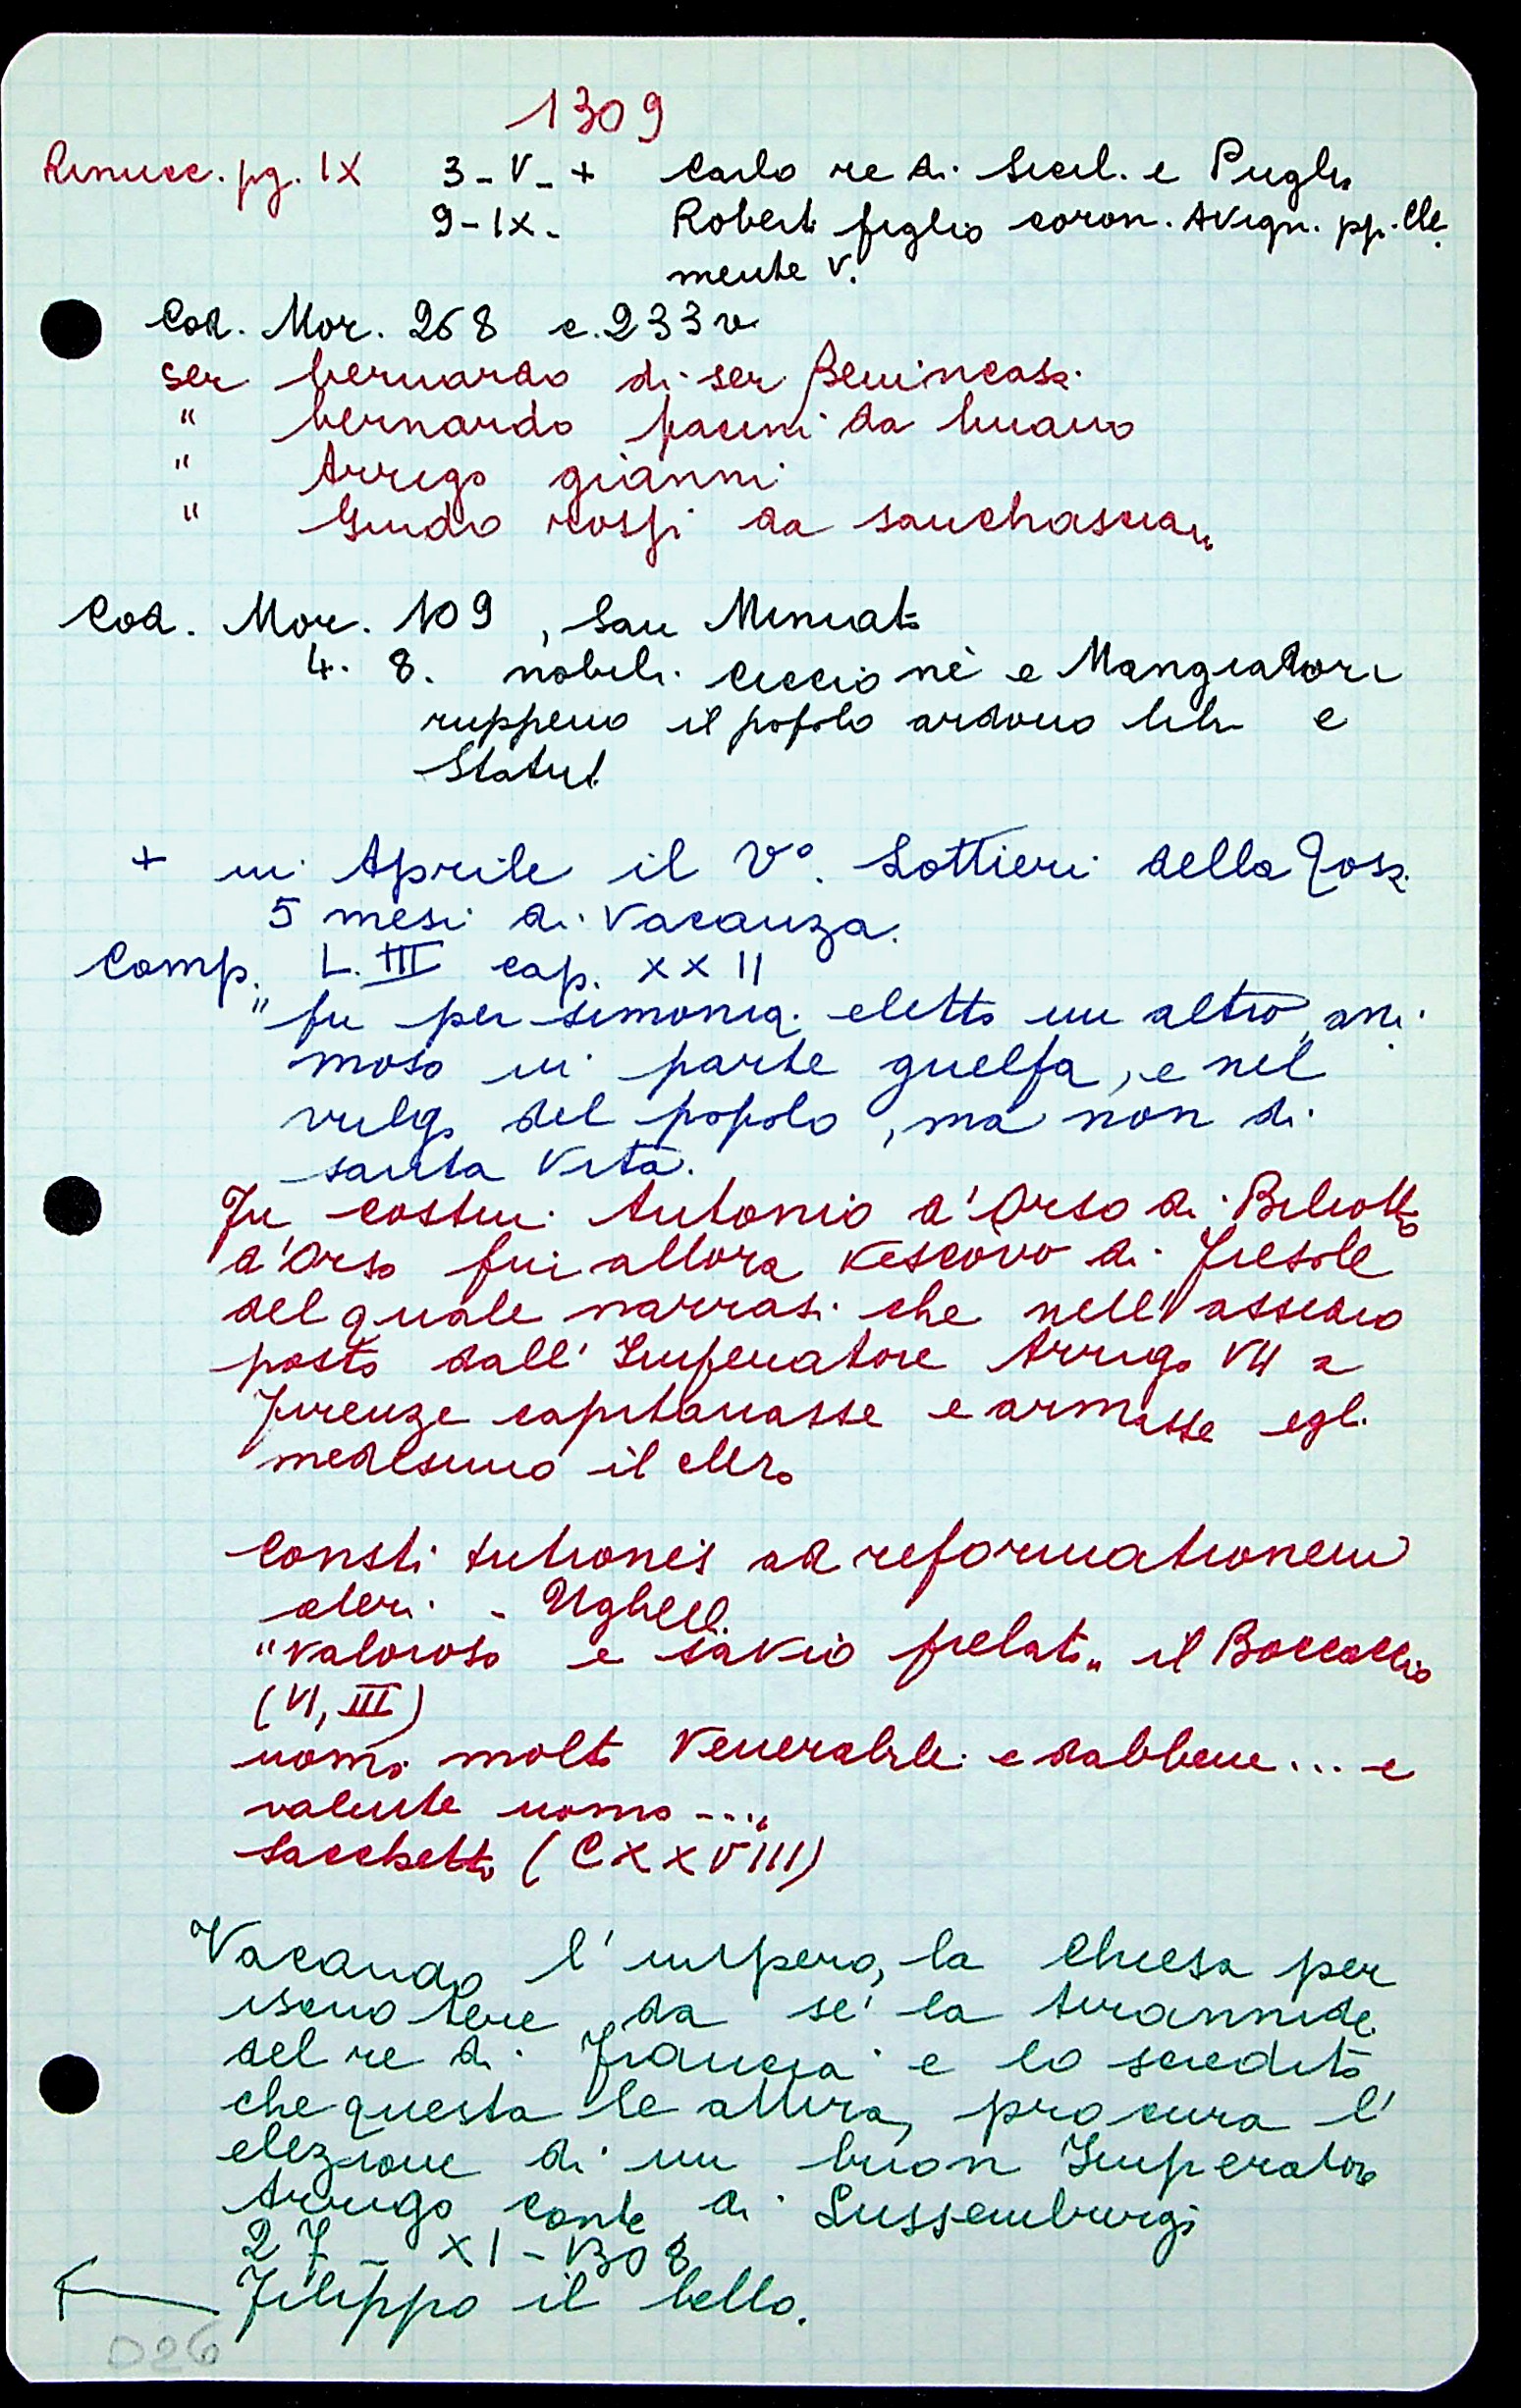 1309
Rinucc. pg. IX 3-V-+ Carlo re di Sicil. e Puglia
9-IX- Roberto figlio coron. Avign. pp. Cle
mente V.
Cod. Mor. 268 c. 233v
ser bernardo di ser Benincasa
" bernardo pacini da
" Arrigo gianni
" Guido rossi da sanchascian
Cod. Mor. 109, San Miniato
4. 8. nobili Ciccione e Mangiatori
ruppeno il popolo ardono libri e
Statuti
+ in Aprile il Vo. Lottieri della Tosa
5 mesi di vacanza.
Comp. L. III cap. XXII
"fu per simonia eletto un altro, ani
moso in parte guelfa, e nel
vulgo del popolo, ma non di
santa vita.
Fu costui Antonio d'Orso di Biliotto
d'Orso fin allora Vescovo di Fiesole
del quale narrasi che nell'assedio
posto dall'Imperatore Arrigo VII a
Firenze capitanasse e armasse egli
medesimo il clero
Constitutiones ad reformationem
cleri - Ughelli
"valoroso e savio prelato" il Boccaccio
(VI, III)
uomo molto venerabile e dabbene... e
valente uomo ....
Sacchetti (CXXVIII)
Vacando l'impero, la Chiesa per
iscuotere da sé la tirannide
del re di Francia e lo scredito
che questa le attira, procura l'
elezione di un buon Imperatore
Arrigo conte di Lussemburgo
27 - XI - 1308
Filippo il bello.
026